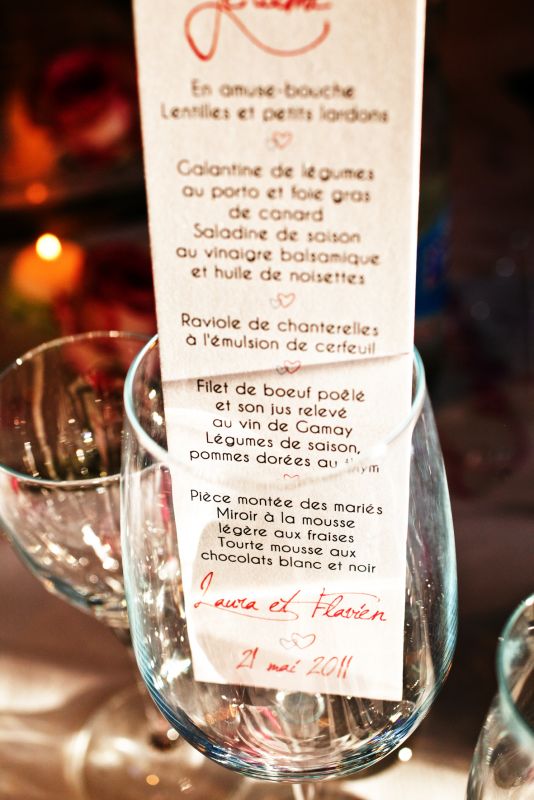 En amuse-bouche
Lentilles et petits lardons
Galantine de légumes
au porto et foie gras
de canard
Saladine de saison
au vinaigre balsamique
et huile de noisettes
Raviole de chanterelles
à l'émulsion de cerfeuil
Filet de boeuf poêlé
et son jus relevé
au vin de Gamay
Légumes de saison,
pommes dorées au thym
Pièce montée des mariés
Miroir à la mousse
légère aux fraises
Tourte mousse aux
chocolats blanc et noir
Laura et Flavien
21 mai 2011